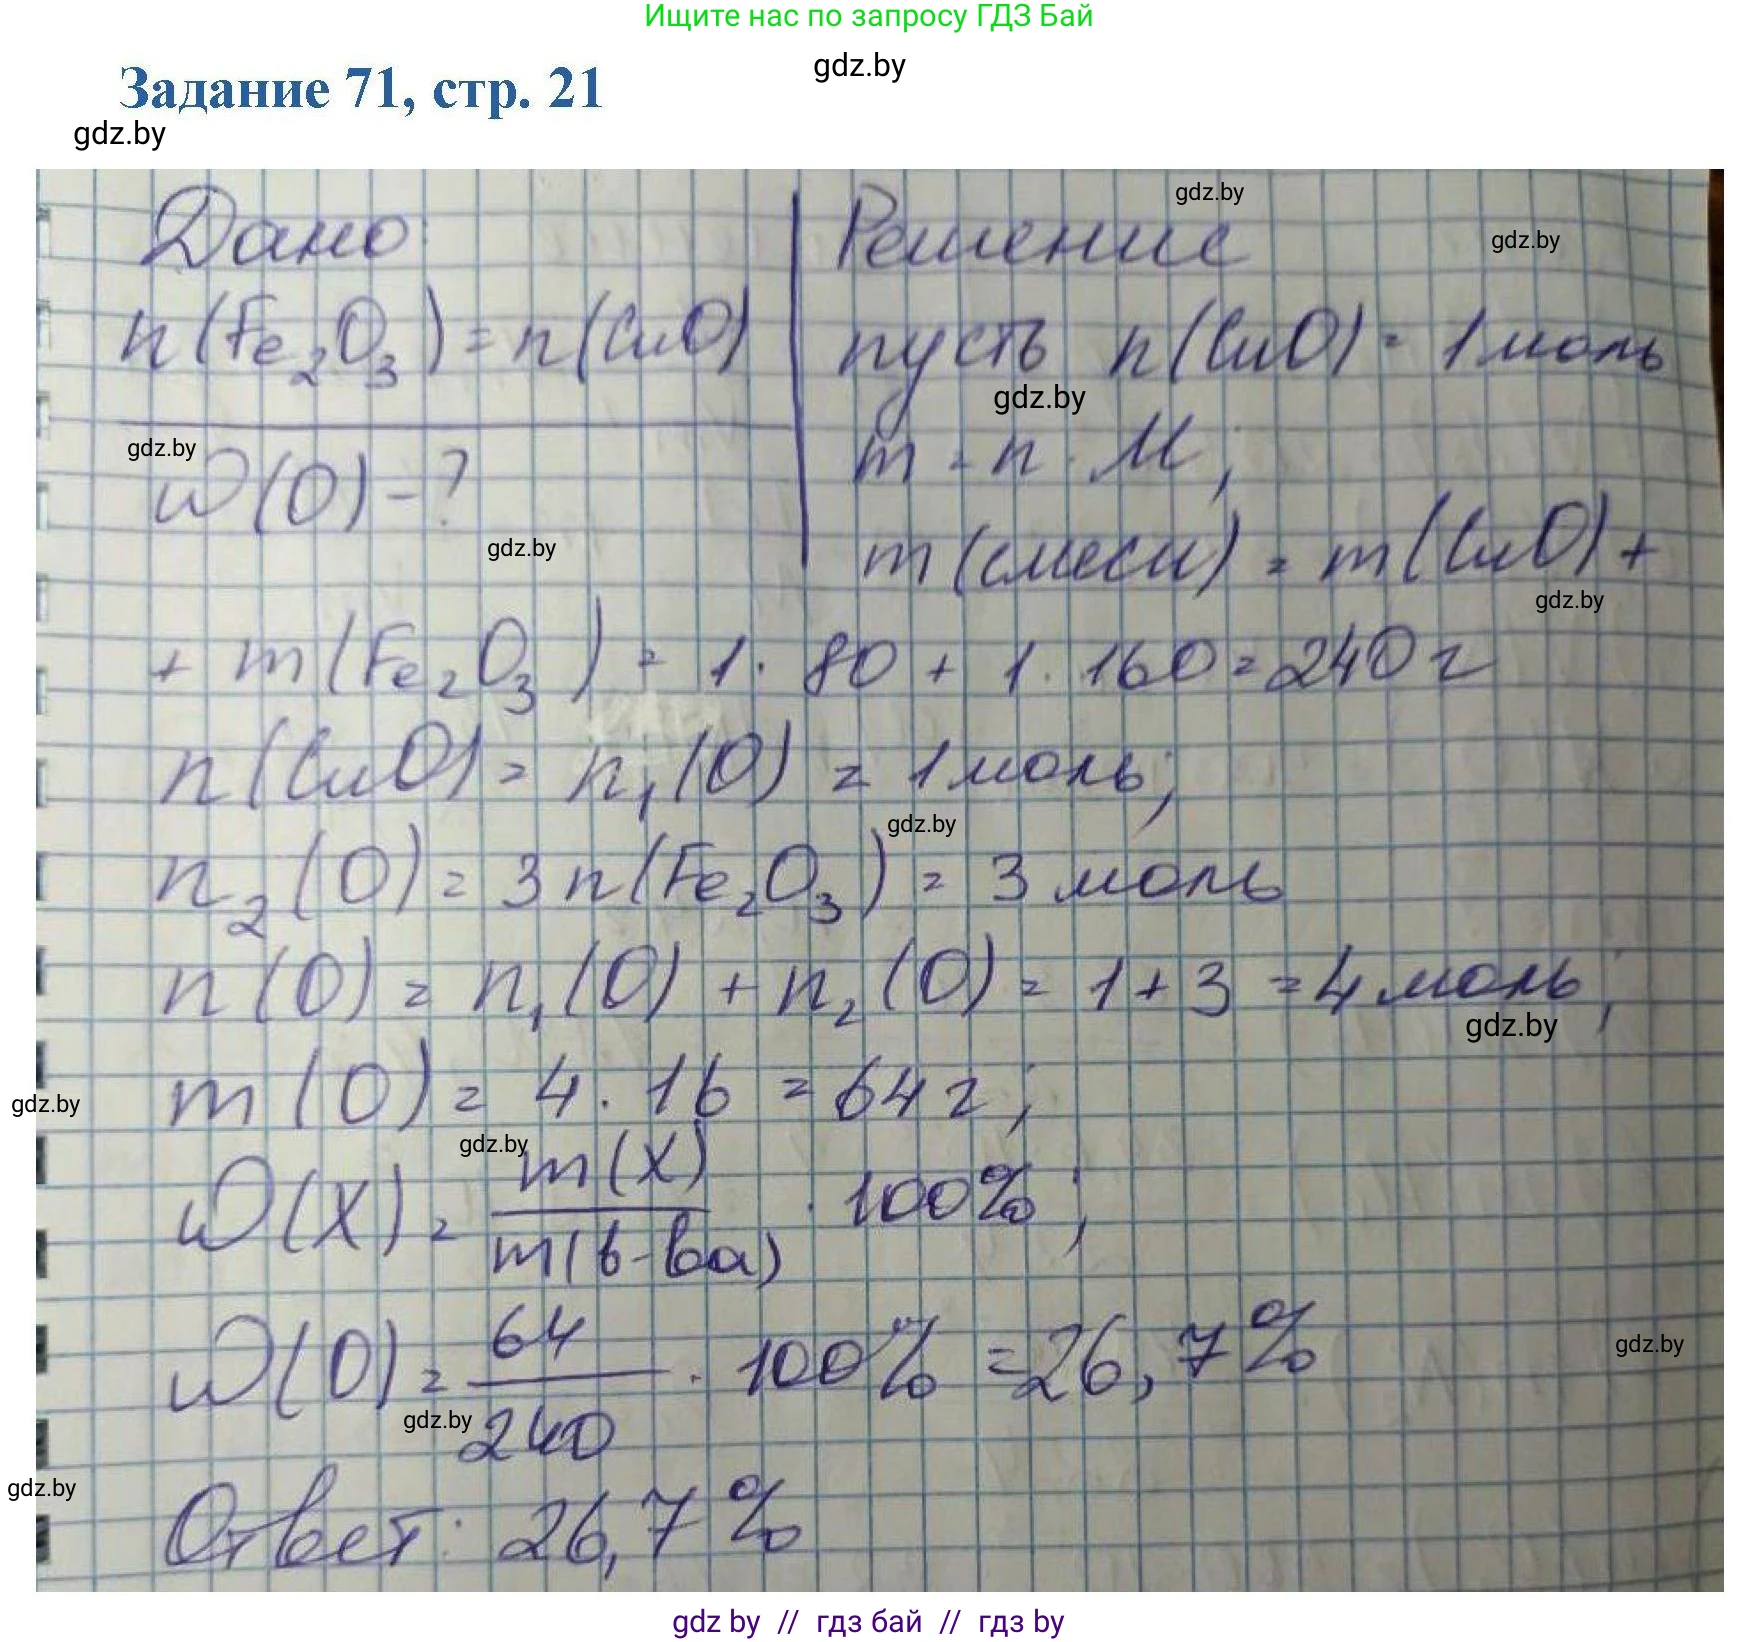 Ищите нас по запросу ГДЗ Бай
gdz.by
Задание 71, стр. 21
gdz.by
gdz.by
Дано: Решение
gdz.by
n(Fe₂O₃) = n(CuO) пусть n(CuO) = 1 моль
gdz.by
m = n · M;
gdz.by
ω(O) - ?
gdz.by
m(смеси) = m(CuO) +
gdz.by
+ m(Fe₂O₃) = 1 · 80 + 1 · 160 = 240 г
n(CuO) = n₁(O) = 1 моль;
gdz.by
n₂(O) = 3n(Fe₂O₃) = 3 моль
n(O) = n₁(O) + n₂(O) = 1 + 3 = 4 моль;
gdz.by
m(O) = 4 · 16 = 64 г;
gdz.by
gdz.by
ω(X) = m(X) / m(в-ва) · 100%;
ω(O) = 64 / 240 · 100% = 26,7%
gdz.by
gdz.by
gdz.by
Ответ: 26,7%
gdz by // гдз бай // гдз by